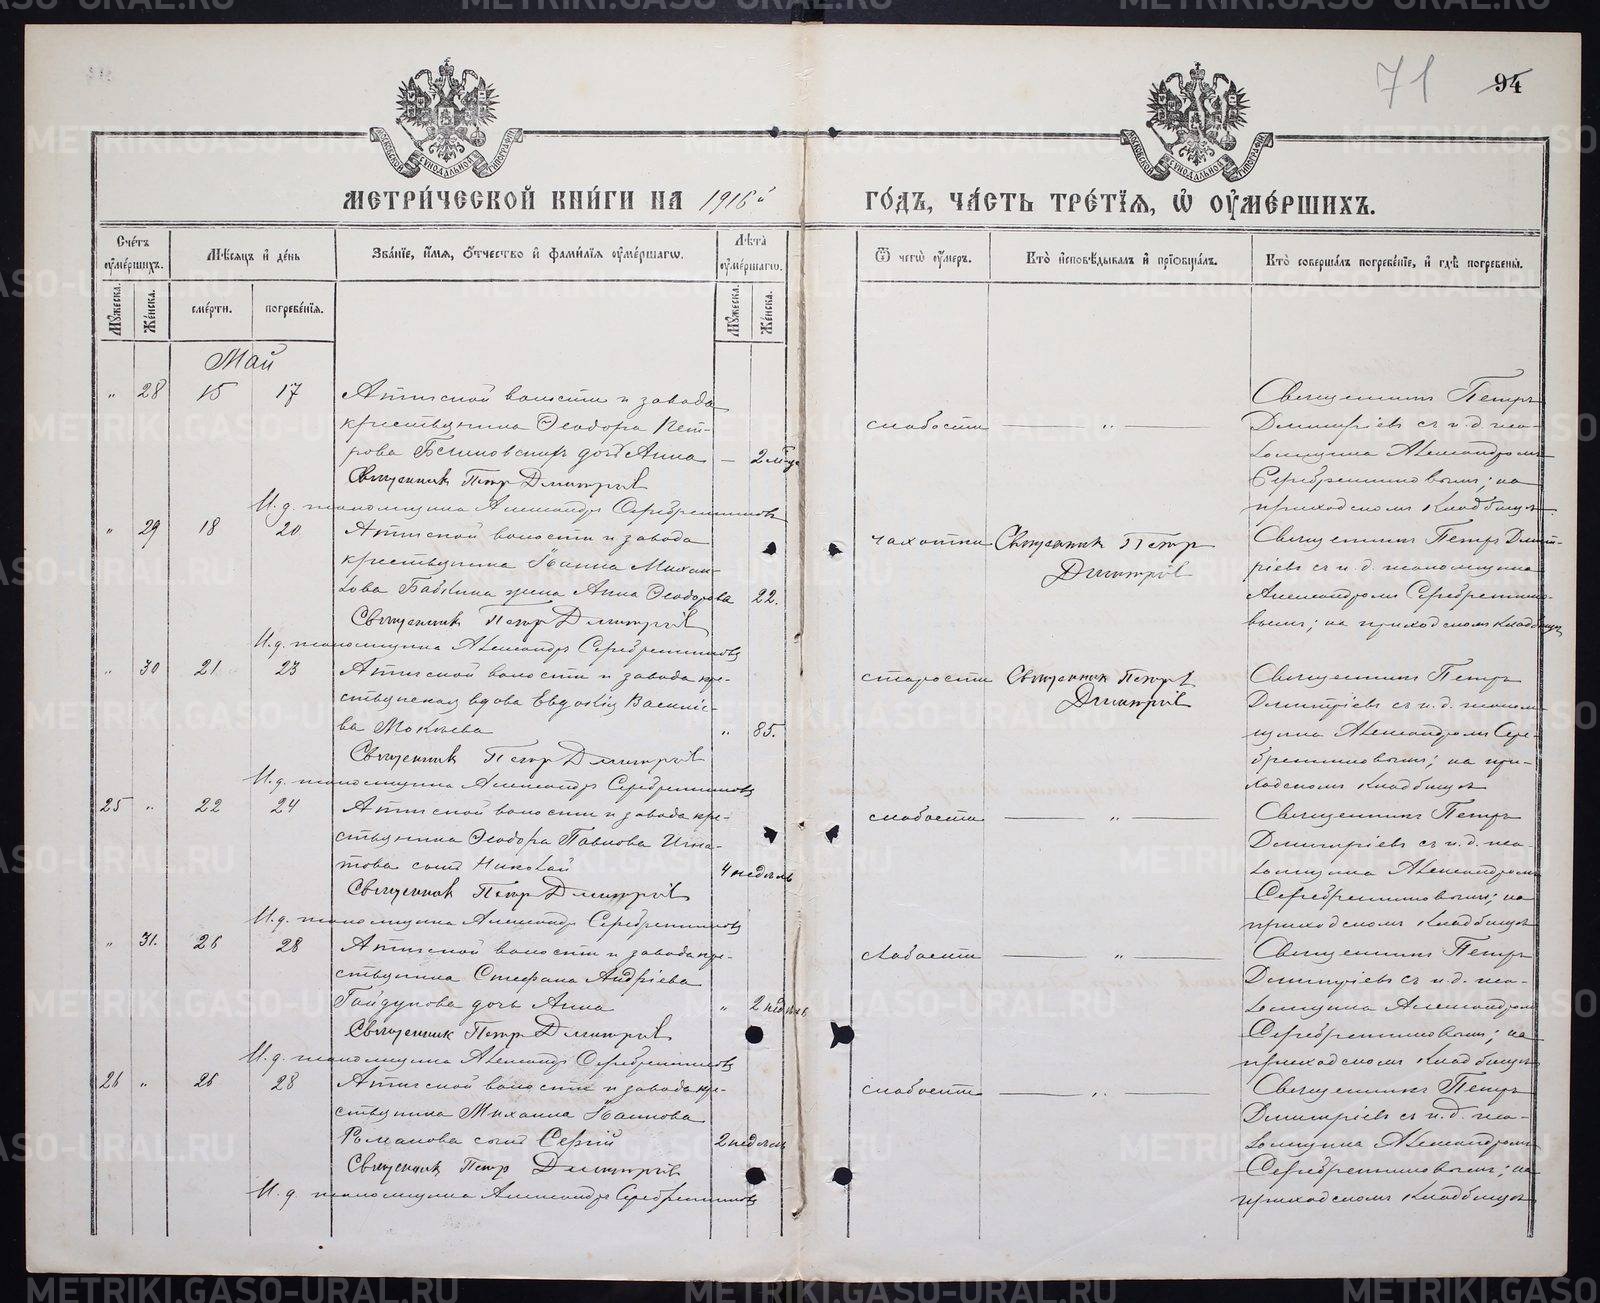 71
94
МЕТРИ́ЧЕСКОЙ КНИ́ГИ НА 1916й ГО́ДЪ, ЧА́СТЬ ТРЕ́ТЇѦ, Ѽ ОУ҆МЕ́РШИХЪ.
Сче́тъ оу҆ме́ршихъ.
Мѣ́сѧцъ и҆ де́нь
Зва́нїе, и҆́мѧ, ѻ҆́тчество и҆ фами́лїѧ оу҆ме́ршагѡ.
Лѣ́та оу҆ме́ршагѡ.
Ѿ чегѡ̀ оу҆́меръ.
Кто̀ и҆сповѣ́дывалъ и҆ прїѡбща́лъ.
Кто̀ соверша́лъ погребе́нїе, и҆ гдѣ̀ погребены̀.
Мꙋ́жеска.
Же́нска.
сме́рти.
погребе́нїѧ.
Мꙋ́жеска.
Же́нска.
Май
" 28 15 17
Атигской волости и завода
крестьянина Ѳеодора Пет-
рова дочь Анна
Священник Петр Димитріев
И. д. псаломщика Александр Серебренников
слабости
Священникъ Петръ
Димитріевъ съ и. д. пса-
ломщика Александромъ
Серебренниковымъ; на
приходскомъ кладбищѣ.
" 29 18 20
Атигской волости и завода
крестьянина Іоанна Михаи-
лова Бабкина жена Анна Ѳеодорова
22.
Священник Петр Димитріев
И. д. псаломщика Александръ Серебренниковъ
чахотки
Священник Петр
Димитріев
Священникъ Петръ Димит-
ріевъ съ и. д. псаломщика
Александромъ Серебренико-
вымъ; на приходскомъ кладбищѣ
" 30 21 23
Атигской волости и завода кре-
стьянская вдова Евдокія Василіе-
ва Мокѣева
" 85.
Священник Петр Димитріев
И. д. псаломщика Александръ Серебренниковъ
старости
Священник Петр
Димитріев
Священникъ Петръ
Димитріевъ съ и. д. псалом-
щика Александромъ Сере-
бренниковымъ; на при-
ходскомъ кладбищѣ
25 " 22 24
Атигской волости и завода кре-
стьянина Ѳеодора Павлова Игна-
това сынъ Николай
4 недѣль
Священник Петр Димитріев
И. д. псаломщика Александръ Серебренниковъ
слабости
Священникъ Петръ
Димитріевъ съ и. д. пса-
ломщика Александромъ
Серебренниковымъ; на
приходскомъ кладбищѣ
" 31. 26 28
Атигской волости и завода кре-
стьянина Стефана Андріева
Гайдукова дочь Анна
" 2 недѣль
Священник Петр Димитріев
И. д. псаломщика Александръ Серебренниковъ
слабости
Священникъ Петръ
Димитріевъ съ и. д. пса-
ломщика Александромъ
Серебренниковымъ; на
приходскомъ кладбищѣ
26 " 26 28
Атигской волости и завода кре-
стьянина Михаила Іоаннова
Романова сынъ Сергій
2 недѣль
Священник Петр Димитріев
И. д. псаломщика Александръ Серебренниковъ
слабости
Священникъ Петръ
Димитріевъ съ и. д. пса-
ломщика Александромъ
Серебренниковымъ; на
приходскомъ кладбищѣ
METRIKI.GASO-URAL.RU